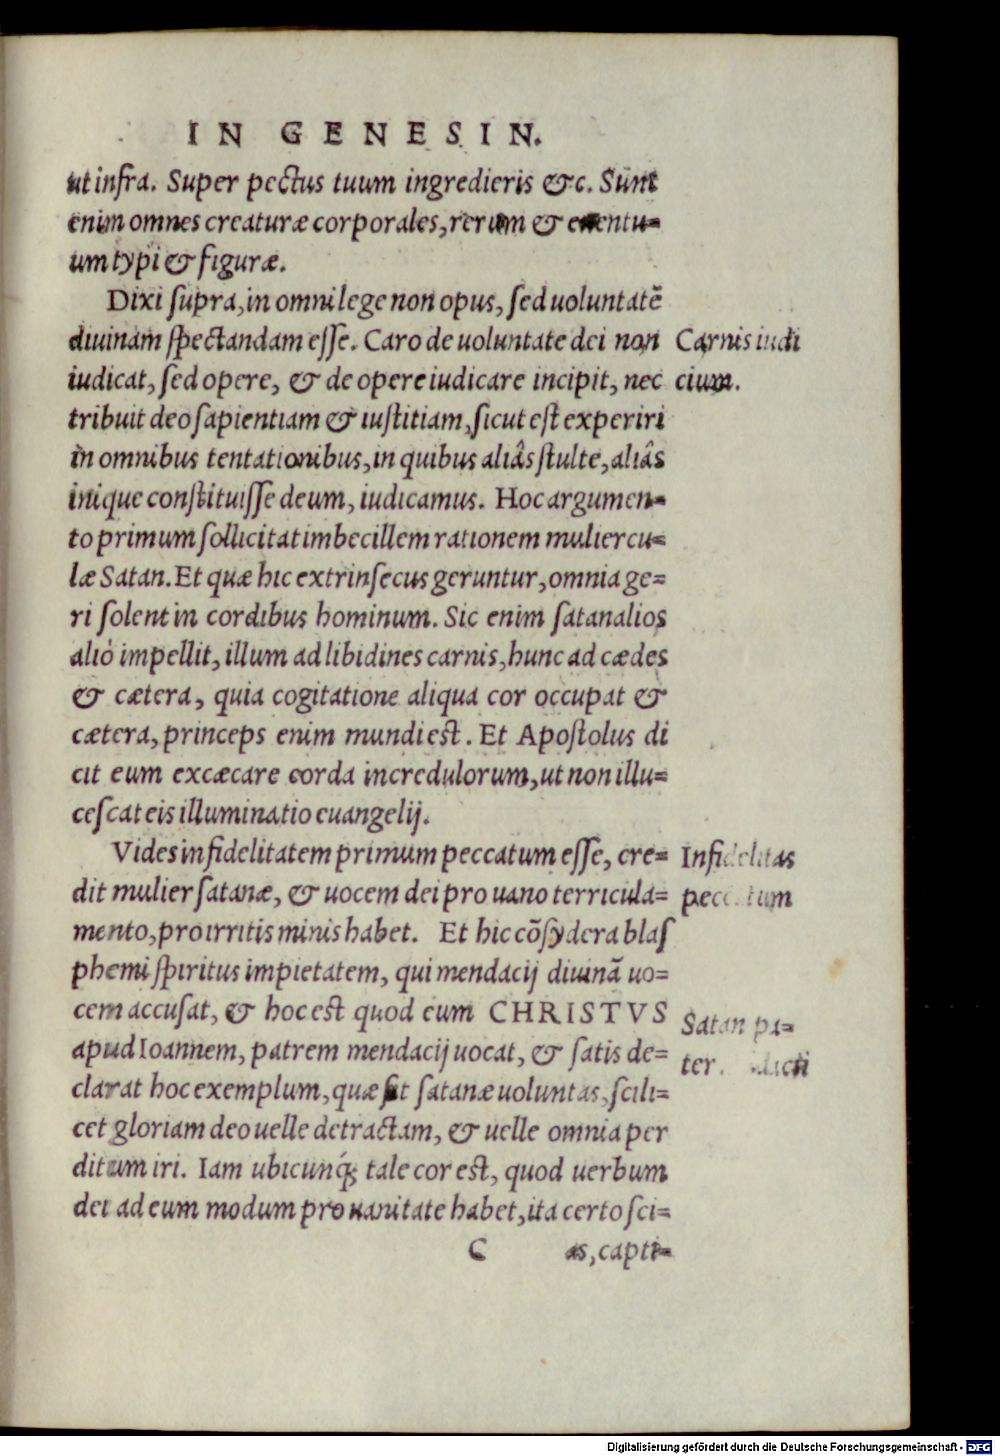 IN GENESIN.
ut infra. Super pectus tuum ingredieris &c. Sunt
enim omnes creaturæ corporales, rerum & euentu=
um typi & figuræ.
Dixi supra, in omni lege non opus, sed uoluntatē
diuinam spectandam esse. Caro de uoluntate dei non
Carnis iudi
iudicat, sed opere, & de opere iudicare incipit, nec
cium.
tribuit deo sapientiam & iustitiam, sicut est experiri
in omnibus tentationibus, in quibus aliâs stulte, aliâs
inique constituisse deum, iudicamus. Hoc argumen=
to primum sollicitat imbecillem rationem muliercu=
læ Satan. Et quæ hic extrinsecus geruntur, omnia ge=
ri solent in cordibus hominum. Sic enim satan alios
aliò impellit, illum ad libidines carnis, hunc ad cædes
& cætera, quia cogitatione aliqua cor occupat &
cætera, princeps enim mundi est. Et Apostolus di
cit eum excæcare corda incredulorum, ut non illu=
cescat eis illuminatio euangelij.
Vides infidelitatem primum peccatum esse, cre=
Infidelitas
dit mulier satanæ, & uocem dei pro uano terricula=
peccatum
mento, pro irritis minis habet. Et hic cōsydera blas
phemi spiritus impietatem, qui mendacij diuinā uo=
cem accusat, & hoc est quod eum CHRISTVS
Satan pa=
apud Ioannem, patrem mendacij uocat, & satis de=
ter.
clarat hoc exemplum, quæ sit satanæ uoluntas, scili=
cet gloriam deo uelle detractam, & uelle omnia per
ditum iri. Iam ubicunq; tale cor est, quod uerbum
dei ad eum modum pro uanitate habet, ita certo sci=
C as, capti=
Digitalisierung gefördert durch die Deutsche Forschungsgemeinschaft - DFG